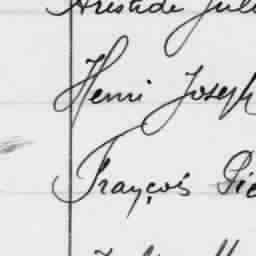 Aristide Jul
Henri Joseph
François Pie